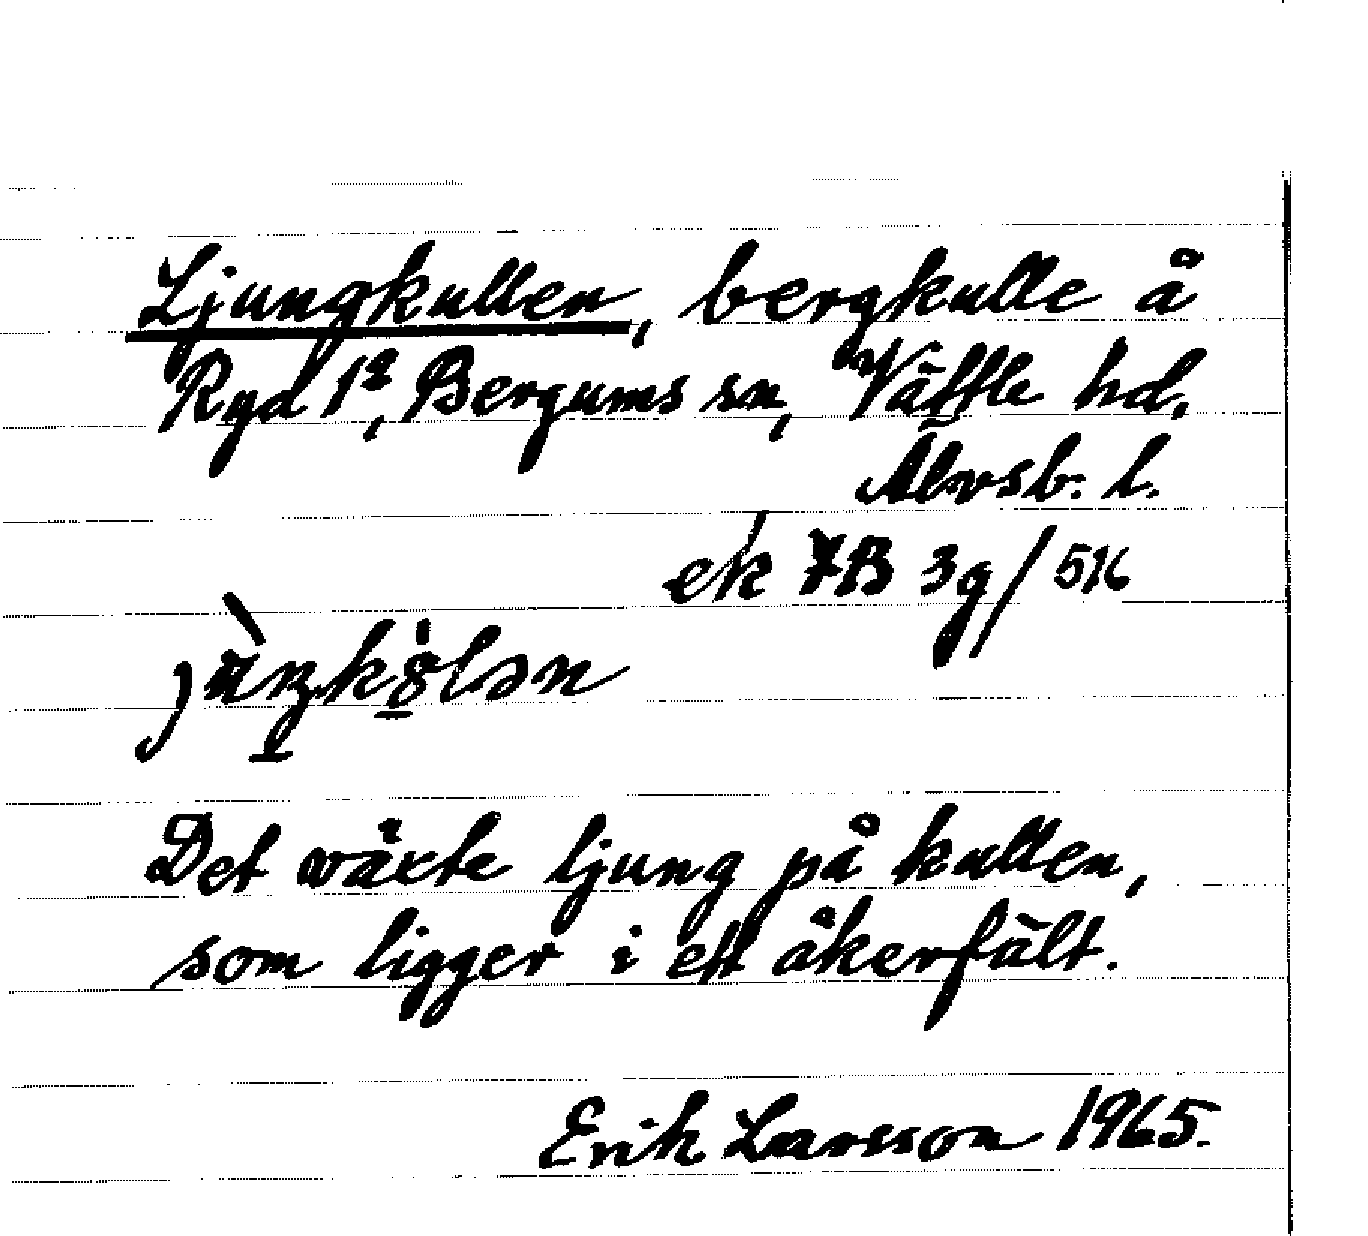 Ljungkullen, bergkulle å
Ryd 1², Bergums sn, Vättle hd,
Älvsb. l.
ek 7B 3g/516
Det växte ljung på kullen,
som ligger i ett åkerfält.
Erik Larsson 1965.